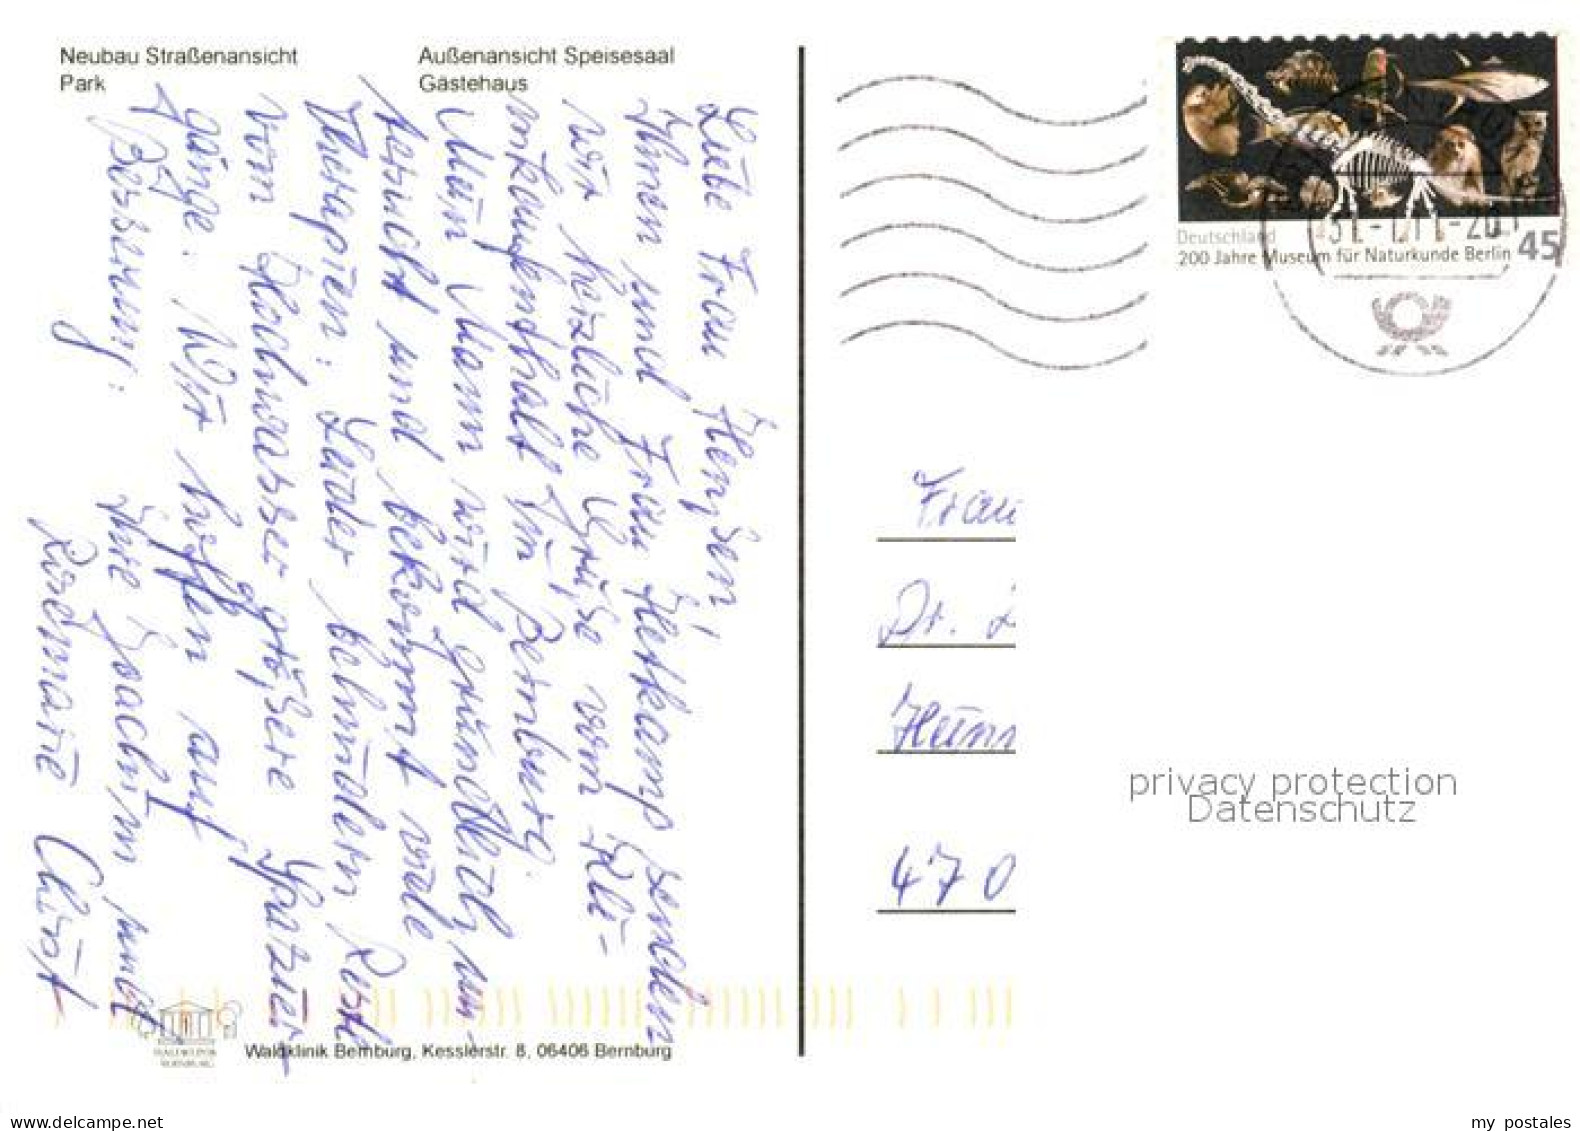 Neubau Straßenansicht
Park
Außenansicht Speisesaal
Gästehaus
Liebe Frau Henßen,
Ihnen und Frau Hetkamp senden
wir herzliche Grüße vom Kli-
nikaufenthalt in Bernburg.
Mein Mann wird gründlich un-
tersucht und bekommt viele
Therapien. Leider behindern Reste
vom Hochwasser größere Spazier-
gänge. Wir hoffen auf
Besserung.
Ihre Joachim und
Rosemarie Christ
Waldklinik Bernburg, Kesslerstr. 8, 06406 Bernburg
WALDKLINIK
BERNBURG
Deutschland
200 Jahre Museum für Naturkunde Berlin
45
Frau
Dr.
470
privacy protection
Datenschutz
www.delcampe.net
my postales